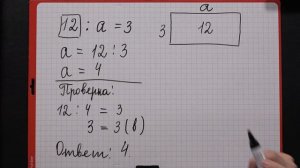 12 : a = 3
a = 12 : 3
a = 4
Проверка:
12 : 4 = 3
3 = 3 (в)
Ответ: 4.
a
3
12